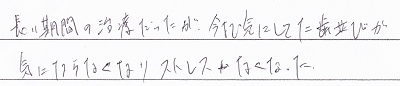 長い期間の治療だったが、今まで気にしてた歯並びが
気にならなくなりストレスがなくなった。